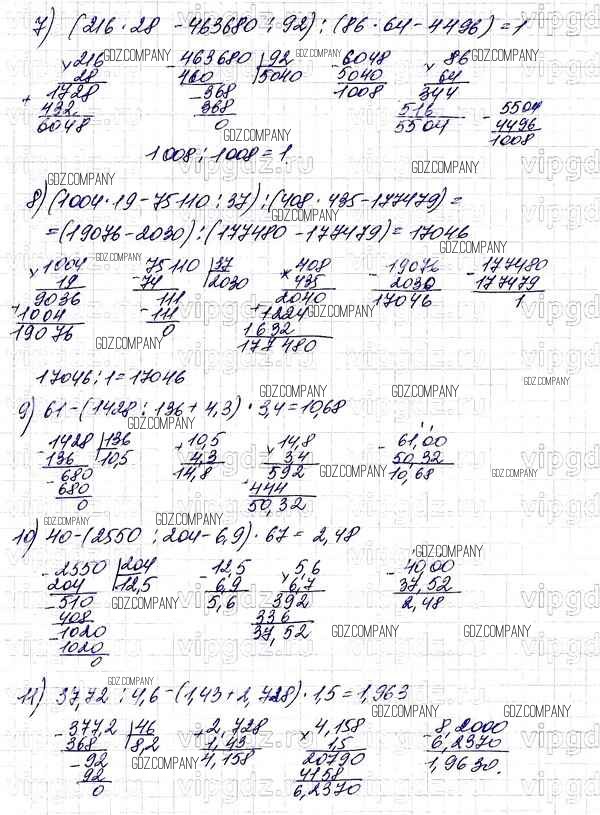 7) (216 · 28 - 463680 : 92) : (86 · 64 - 4496) = 1
× 216 - 463680 | 92 - 6048 × 86
28 460 | 5040 5040 64
+ 1728 - 368 1008 344
432 368 516 - 5504
6048 0 5504 4496
1008
1008 : 1008 = 1
8) (1004 · 19 - 75110 : 37) : (408 · 435 - 177479) =
= (19076 - 2030) : (177480 - 177479) = 17046
× 1004 - 75110 | 37 × 408 - 19076 - 177480
19 74 | 2030 435 2030 177479
9036 - 111 2040 17046 1
+ 1004 111 + 1224
19076 0 1632
177480
17046 : 1 = 17046
9) 61 - (1428 : 136 + 4,3) · 3,4 = 10,68
- 1428 | 136 + 10,5 × 14,8 - 61,00
136 | 10,5 4,3 3,4 50,32
- 680 14,8 592 10,68
680 + 444
0 50,32
10) 40 - (2550 : 204 - 6,9) · 67 = 2,48
- 2550 | 204 - 12,5 × 5,6 - 40,00
204 | 12,5 6,9 6,7 37,52
- 510 5,6 392 2,48
408 336
- 1020 37,52
1020
0
11) 37,72 : 4,6 - (1,43 + 2,728) · 1,5 = 1,963
- 377,2 | 46 + 2,728 × 4,158 - 8,2000
368 | 8,2 1,43 1,5 6,2370
- 92 4,158 20790 1,9630.
92 4158
0 6,2370
GDZ.COMPANY
vipgdz.ru